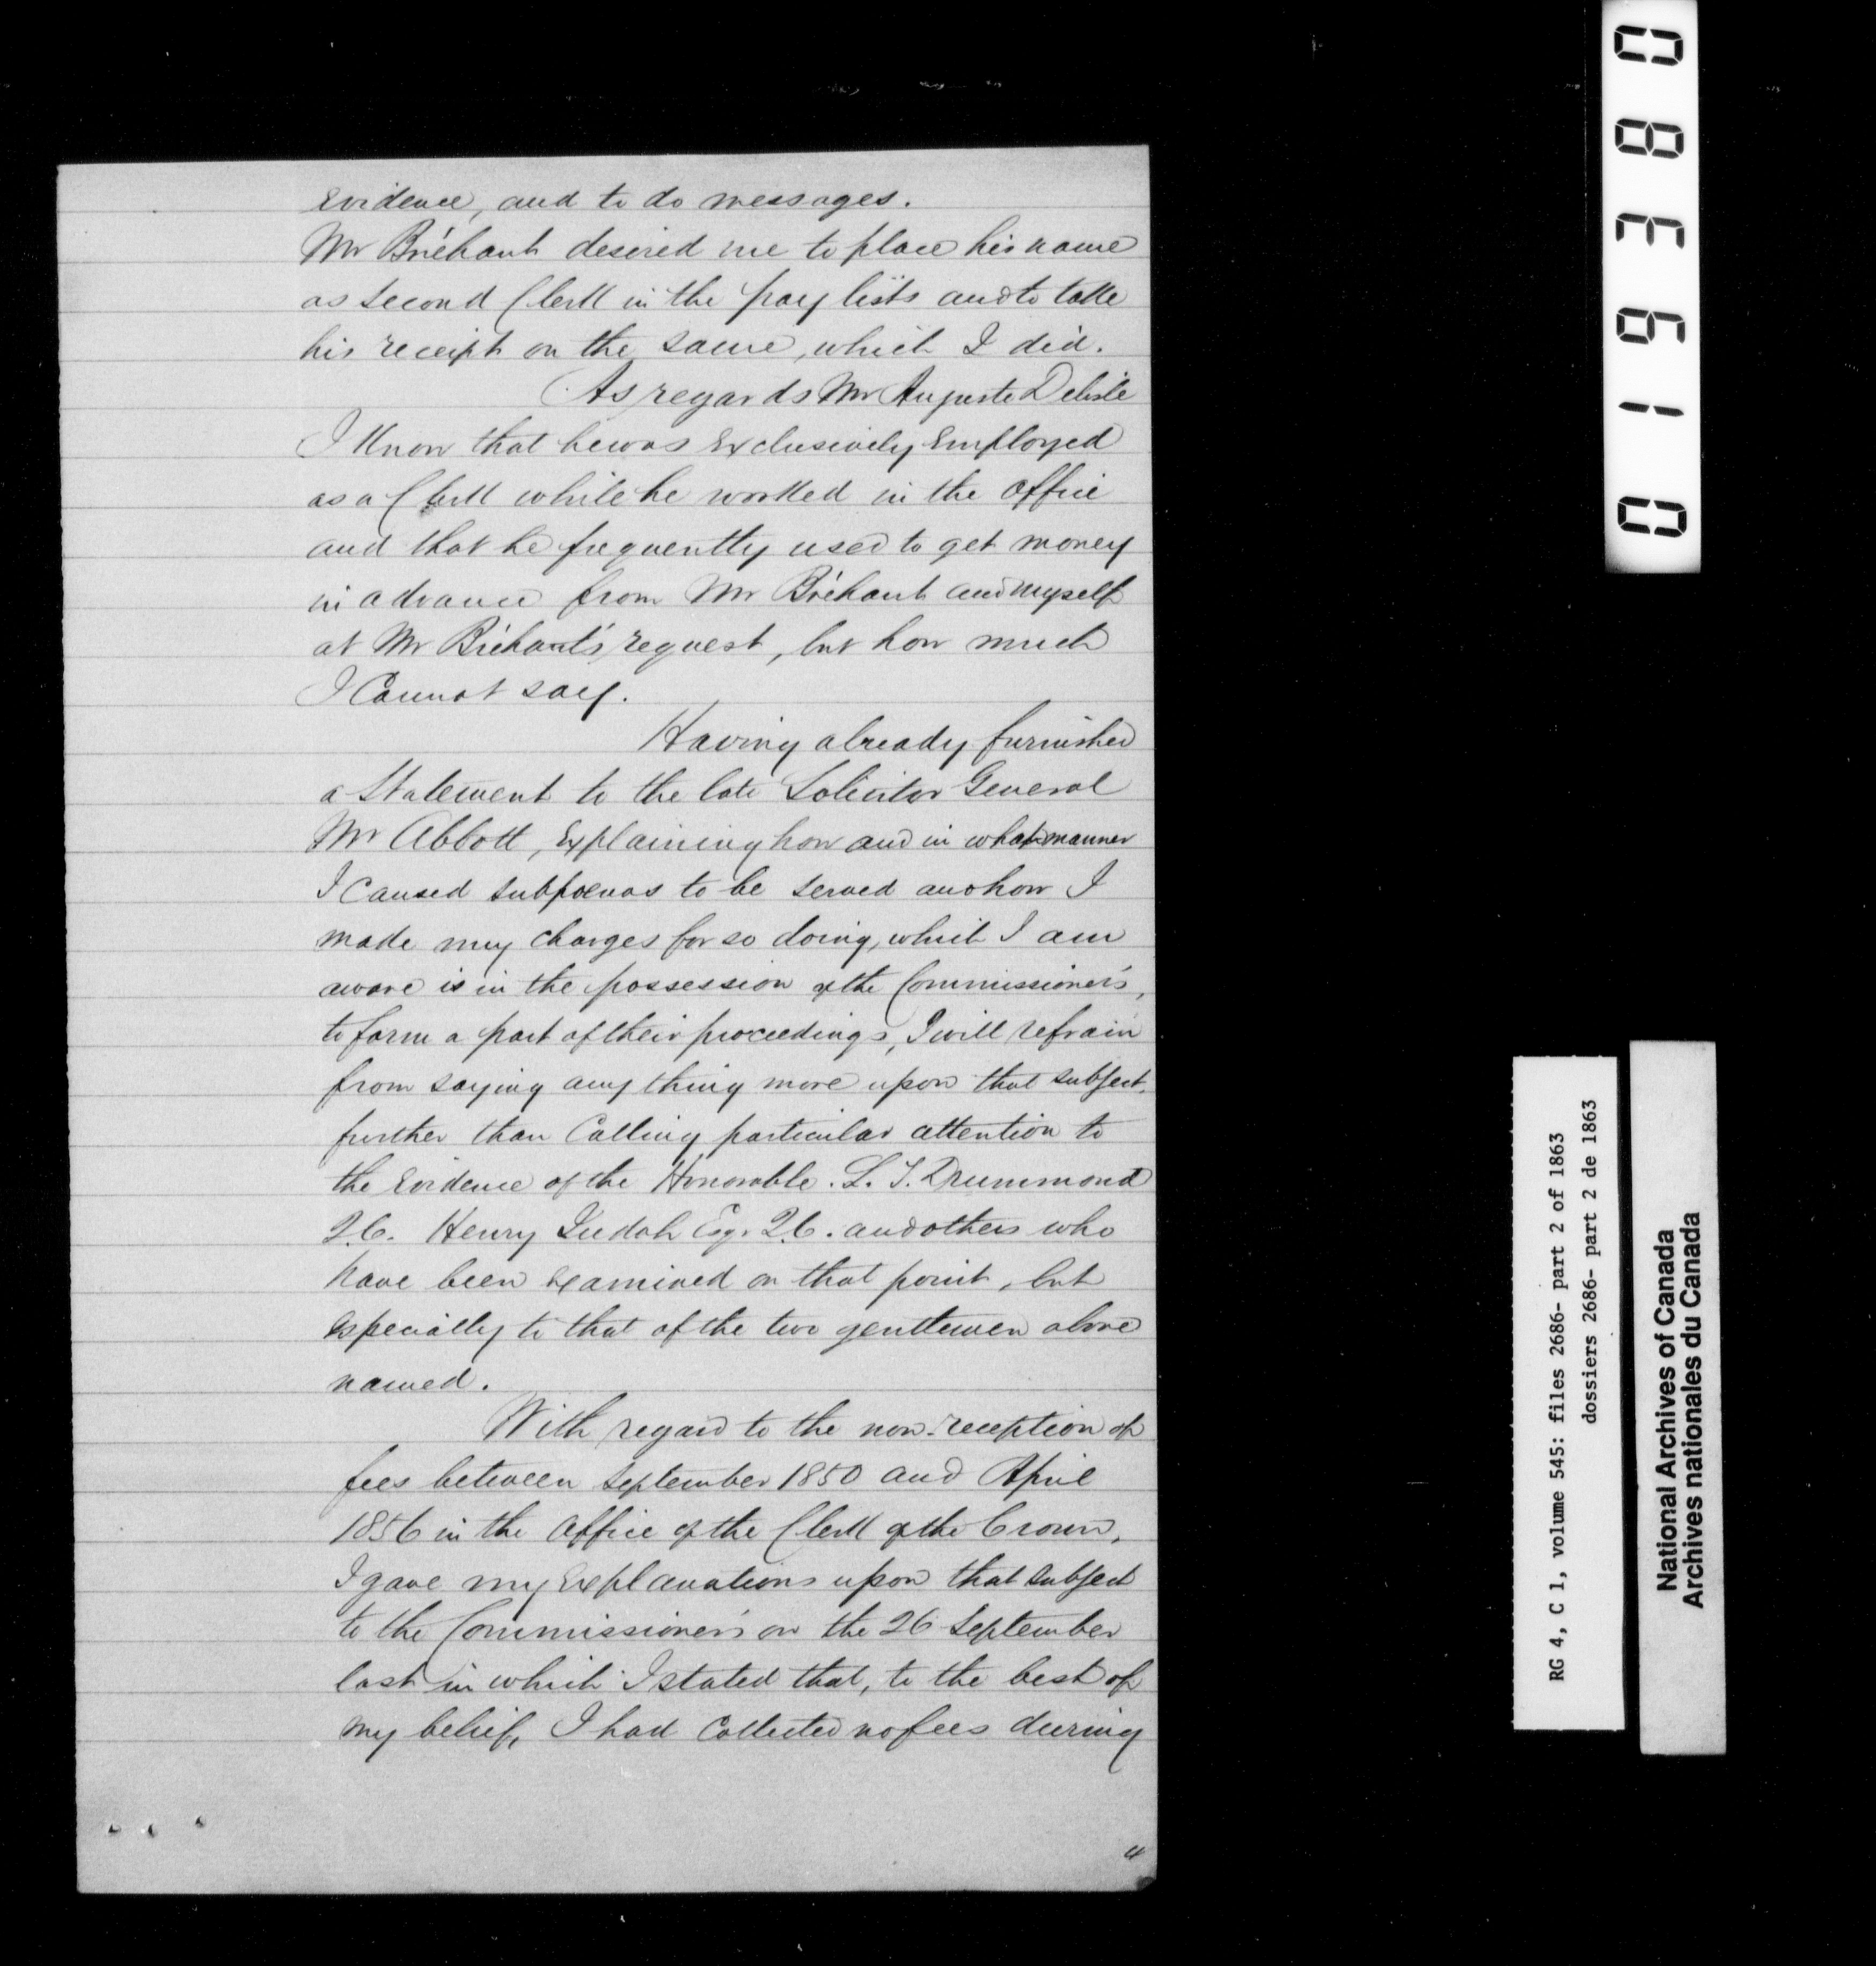 Evidence, and to do messages.
Mr Bréhaut desired me to place his name
as second Clerk in the pay lists and to take
his receipt on the same, which I did.
As regards Mr Auguste Delisle
I Know that he was Exclusively Employed
as a Clerk while he worked in the office
and that he frequently used to get money
in advance from Mr Bréhaut and myself
at Mr Bréhaut's request, but how much
I Cannot say.
Having already furnished
a Statement to the late Solicitor General
Mr Abbott, Explaining how and in what manner
I Caused subpœnas to be served and how I
made my charges for so doing, which I am
aware is in the possession of the Commissioner's,
to form a part of their proceedings, I will refrain
from saying any thing more upon that subject,
further than Calling particular attention to
the Evidence of the Honorable. L. T. Drummond
Q.C. Henry Judah Esqr. Q.C. and others who
have been Examined on that point, but
Especially to that of the two gentlemen above
named.
With regard to the non-reception of
fees between September 1850 and April
1856 in the Office of the Clerk of the Crown,
I gave my Explanations upon that subject
to the Commissioner's on the 26 September
last in which I stated that, to the best of
my belief, I had Collected no fees during
4
019380
RG 4, C 1, volume 545: files 2686- part 2 of 1863
dossiers 2686- part 2 de 1863
National Archives of Canada
Archives nationales du Canada